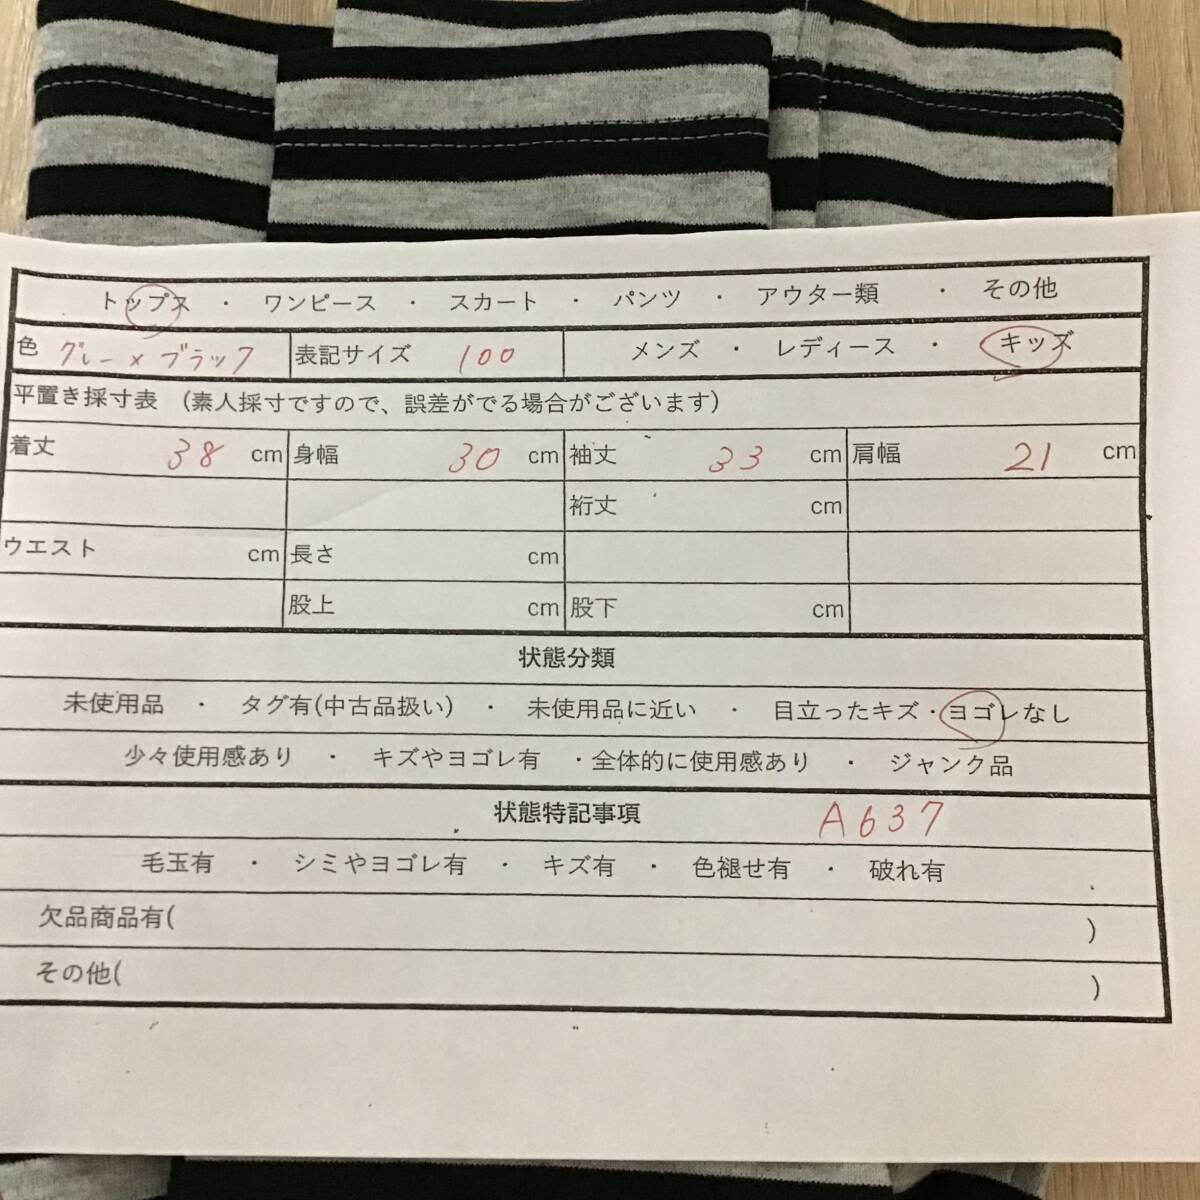 トップス ・ ワンピース ・ スカート ・ パンツ ・ アウター類 ・ その他
色 グレー×ブラック 表記サイズ 100 メンズ ・ レディース ・ キッズ
平置き採寸表 (素人採寸ですので、誤差がでる場合がございます)
着丈 38 cm 身幅 30 cm 袖丈 33 cm 肩幅 21 cm
裄丈 cm
ウエスト cm 長さ cm
股上 cm 股下 cm
状態分類
未使用品 ・ タグ有(中古品扱い) ・ 未使用品に近い ・ 目立ったキズ・ヨゴレなし
少々使用感あり ・ キズやヨゴレ有 ・全体的に使用感あり ・ ジャンク品
状態特記事項 A637
毛玉有 ・ シミやヨゴレ有 ・ キズ有 ・ 色褪せ有 ・ 破れ有
欠品商品有( )
その他( )